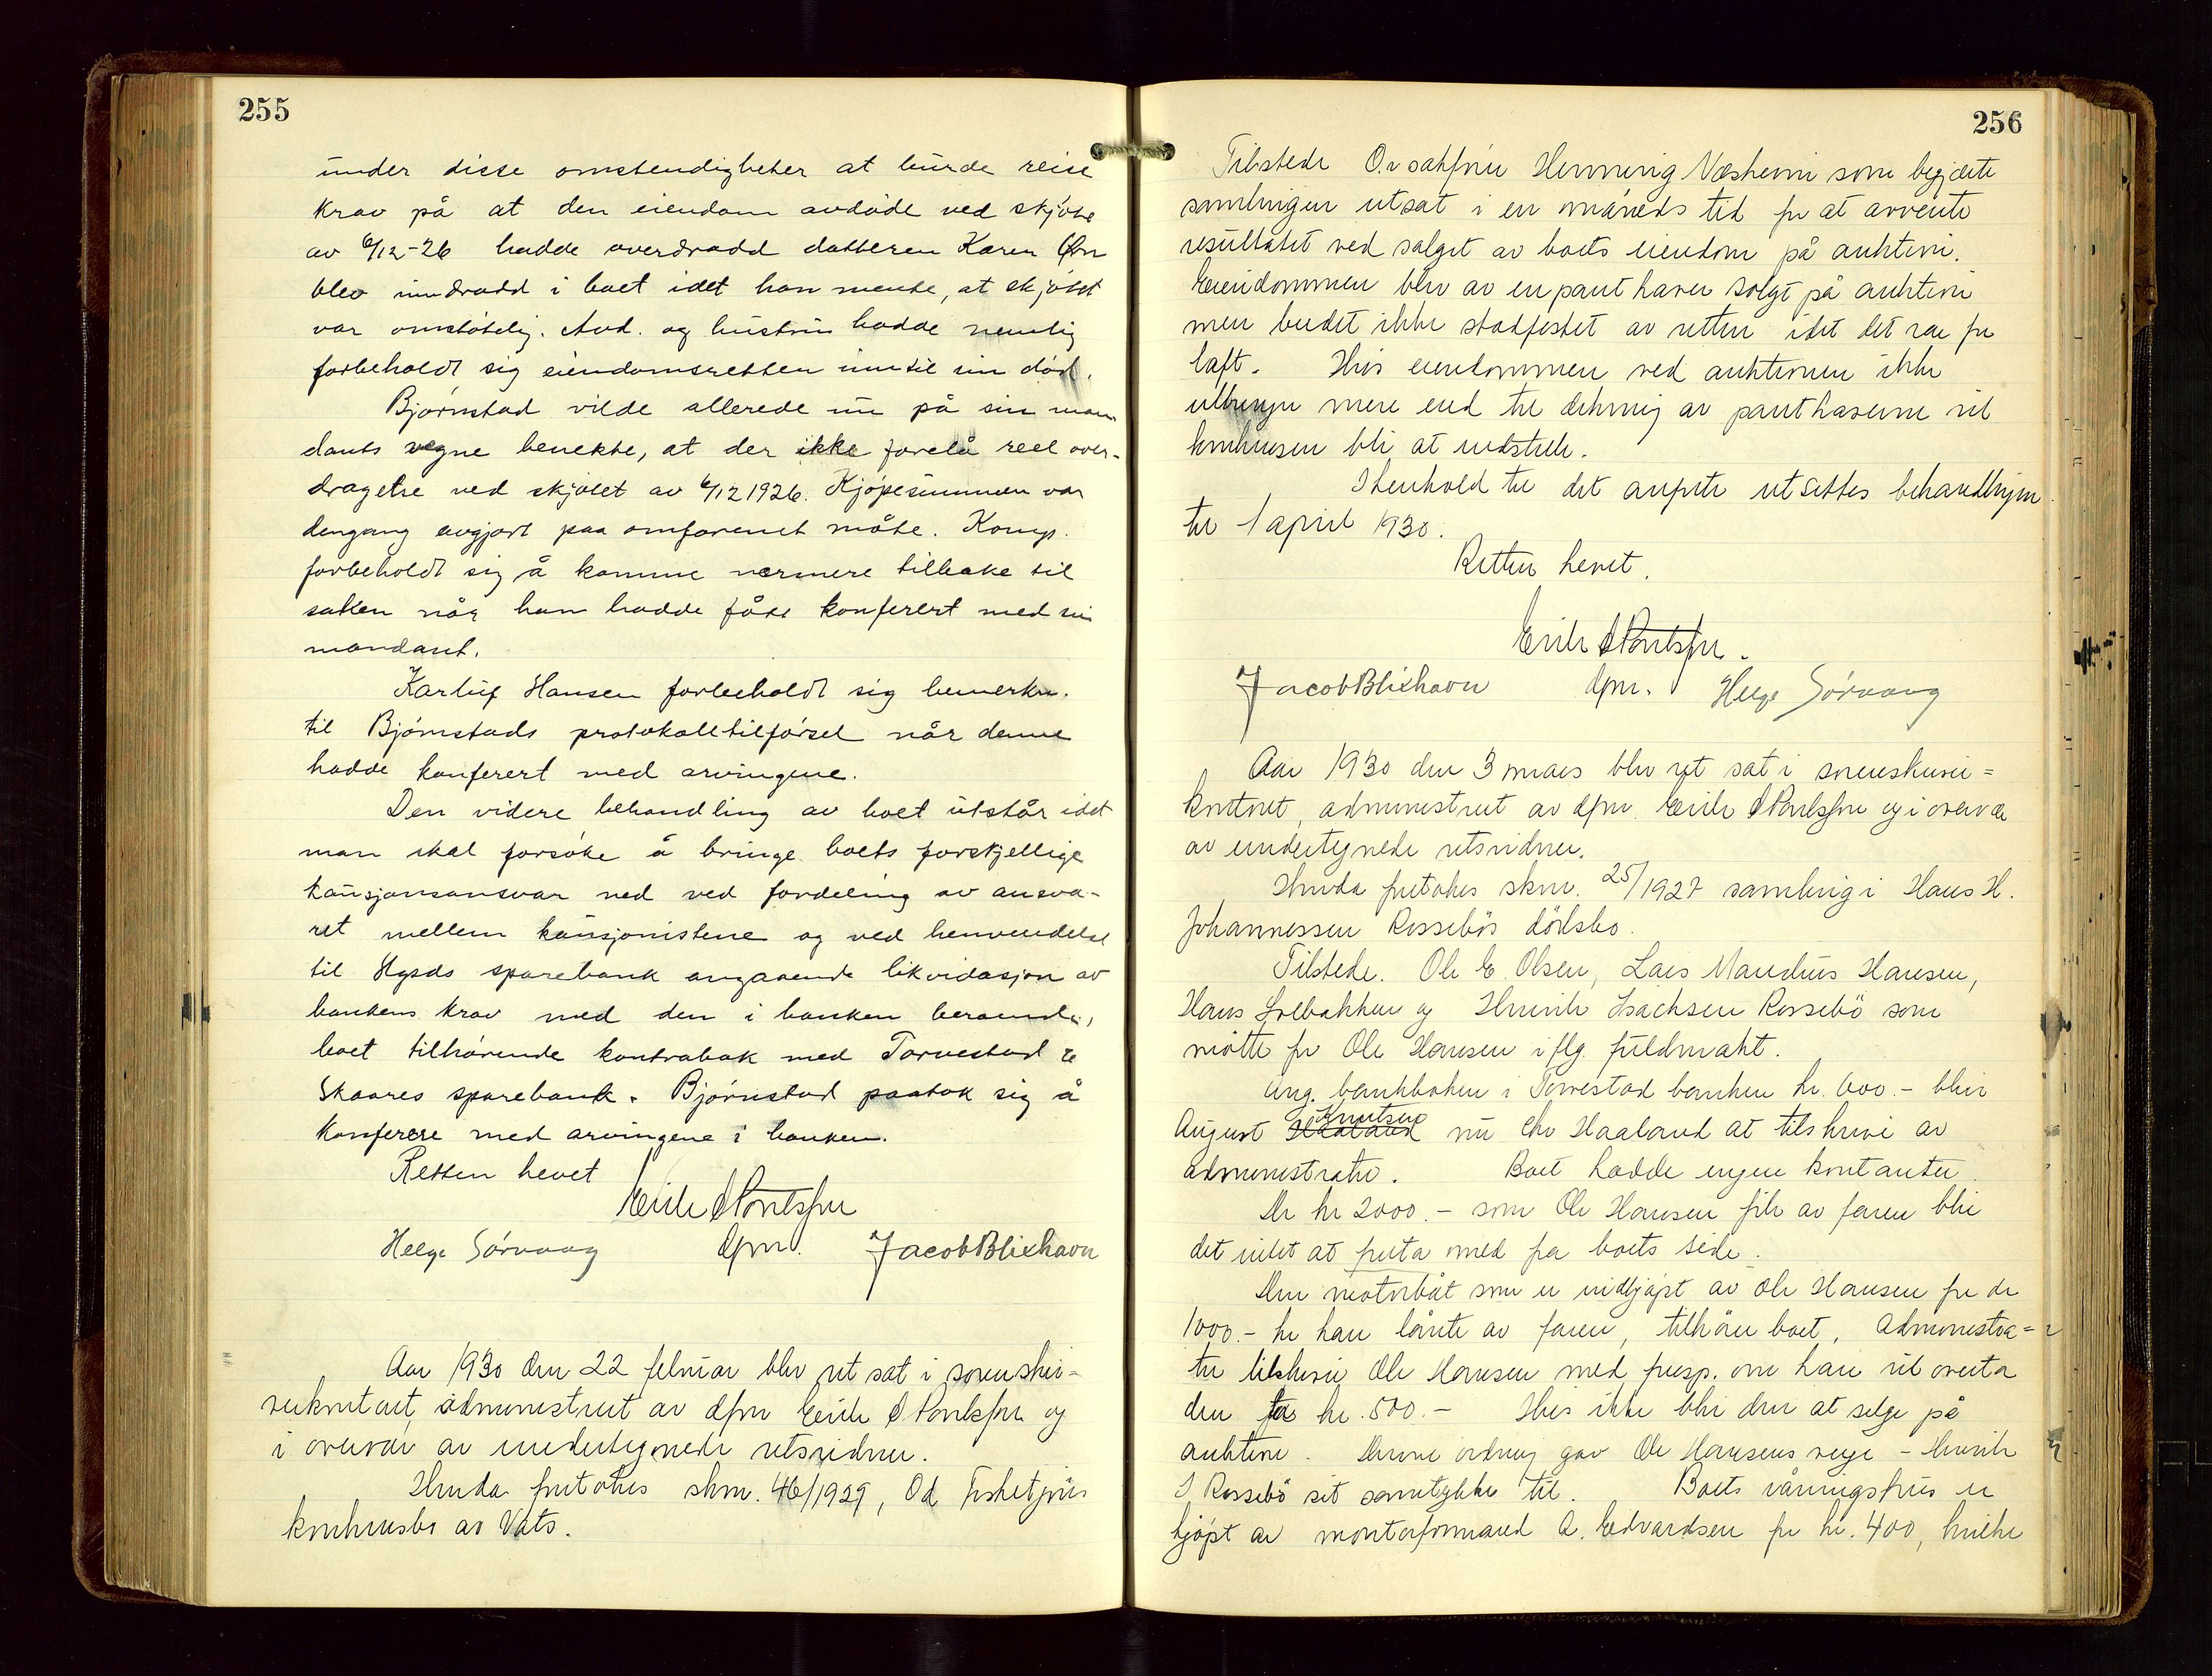 255
under disse omstendigheter at burde reise
krav på at den eiendom avdøde ved skjøte
av 6/12-26 hadde overdradd datteren Karen
blev inndradd i boet idet han mente, at skjøtet
var omstøtelig. Avd. og hustru hadde nemlig
forbeholdt sig eiendomsretten inntil sin død.
Bjørnstad vilde allerede nu på sin man
dants vegne benekte, at der ikke forelå reel over-
dragelse ved skjøtet av 6/12 1926. Kjøpesummen var
dengang avgjort paa omforenet måte. Komp.
forbeholdt sig å komme nærmere tilbake til
saken når han hadde fått konferert med sin
mandant.
Karluf Hansen forbeholdt sig bemerkn.
til Bjørnstads protokolltilførsel når denne
hadde konferert med arvingene.
Den videre behandling av boet utstår idet
man skal forsøke å bringe boets forskjellige
kausjonsansvar ned ved fordeling av ansva-
ret mellem kausjonistene og ved henvendelse
til Hgsds sparebank angaaende likvidasjon av
bankens krav med den i banken beroende,
boet tilhørende kontrabok med Torvestad &
Skaares sparebank. Bjørnstad paatok sig å
konferere med arvingene i banken.
Retten hevet
Helge Sørvaag dfm. Jacob Blixhavn
Aar 1930 den 22 februar blev ret sat i sorenskri-
verkontoret, administrert av dfm Eirik og
i overvær av undertegnede retsvidner.
Herunder foretokes skm. 46/1929, Od Fisketjøns
konkursbo av Vats.
256
Tilstede O.r sakfører Henning Næsheim som begjærte
samlingen utsat i en måneds tid for at avvente
resultatet ved salget av boets eiendom på auktion.
Eiendommen blev av en panthaver solgt på auktion
men budet ikke stadfestet av retten idet det var for
laft. Hvis eiendommen ved auktionen ikke
utbringer mere end til dekning av panthaverne vil
konkursen bli at indstille.
I henhold til det anførte utsettes behandlingen
til 1 april 1930.
Retten hevet.
Jacob Blixhavn dfm. Helge Sørvaag
Aar 1930 den 3 mars blev ret sat i sorenskriver=
kontoret, administrert av dfm. Eirik og i overvær
av undertegnede retsvidner.
Herunder foretokes skm. 25/1927 samling i Hans H.
Johannessen Rossebøs dødsbo.
Tilstede. Ole E. Olsen, Lars Mandius Hansen,
Hans Solbakken og Henrik Isachsen Rossebø som
møtte for Ole Hansen iflg. fuldmakt.
Ang. bankboken i Torvestad banken kr. 600.- blir
August Haaland Knutsen nu Chr Haaland at tilskrive av
administrator. Boet hadde ingen kontanter.
De kr 2000.- som Ole Hansen fik av faren blir
det intet at foreta med fra boets side.
Den motorbåt som er indkjøpt av Ole Hansen for de
1000.- kr han lånte av faren, tilhører boet. Administra=
tor tilskriver Ole Hansen med foresp. om han vil overta
den for kr. 500.- Hvis ikke blir den at selge på
auktion. Denne ordning gav Ole Hansens verge - Henrik
I Rossebø sit samtykke til. Boets våningshus er
kjøpt av montørformand A. Edvardsen for kr. 400, hvilke